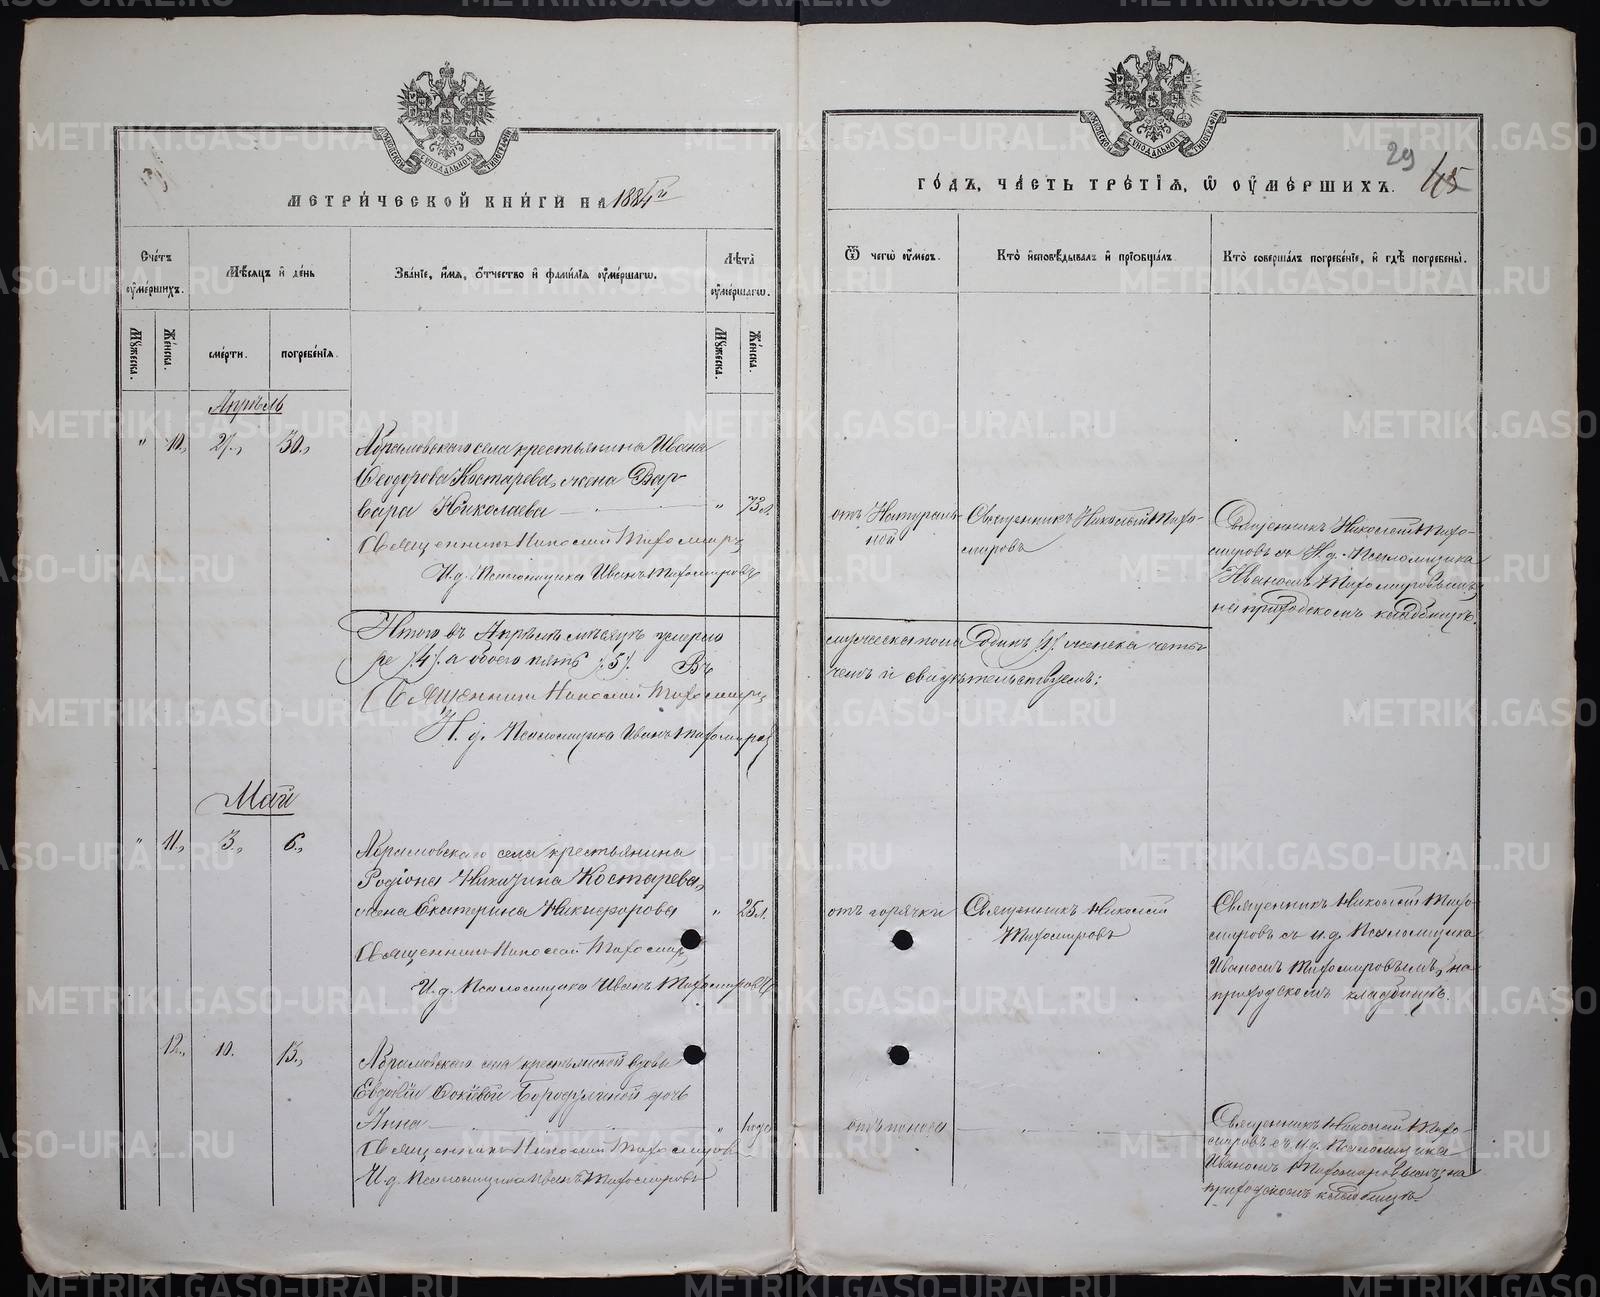 МЕТРИЧЕСКОЙ КНИГИ НА 1884й
Счетъ умершихъ.
Мѣсяцъ и день
Званіе, имя, отчество и фамилія умершаго.
Лѣта умершаго.
Мужеска.
Женска.
смерти.
погребенія.
Мужеска.
Женска.
Апрѣль
" 10. 27. 30.
Абрамовскаго села крестьянина Ивана
Ѳеодорова Костарева, жена Вар-
вара Николаева — " 73 л.
Священникъ Николай Тихомировъ
И. д. Псаломщика Иванъ Тихомировъ
Итого въ Апрѣлѣ мѣсяцѣ умерло
ре /4/. а обоего пять /5/. Въ
Священникъ Николай Тихомировъ
И. д. Псаломщика Иванъ Тихомировъ
Май
" 11. 3. 6.
Абрамовскаго села крестьянина
Родіона Никитина Костарева,
жена Екатерина Никифорова " 25 л.
Священникъ Николай Тихомировъ
И. д. Псаломщика Иванъ Тихомировъ
12. 10. 13.
Абрамовскаго села крестьянской вдовы
Евдокіи Бородулиной дочь
Анна — " 1 годъ
Священникъ Николай Тихомировъ
И. д. Псаломщика Иванъ Тихомировъ
29
45
ГОДЪ, ЧАСТЬ ТРЕТІЯ, Ѡ ОУМЕРШИХЪ.
Ѿ чегѡ умеръ.
Кто исповѣдывалъ и пріобщалъ.
Кто совершалъ погребеніе, и гдѣ погребены.
отъ Натураль-
ной
Священникъ Николай Тихо-
мировъ
Священникъ Николай Тихо-
мировъ съ И. д. Псаломщика
Иваномъ Тихомировымъ
на приходскомъ кладбищѣ.
мужеска пола Одинъ /1/ женска четы-
чемъ и свидѣтельствуемъ:
отъ горячки
Священникъ Николай
Тихомировъ
Священникъ Николай Тихо-
мировъ съ и. д. Псаломщика
Иваномъ Тихомировымъ, на
приходскомъ кладбищѣ.
отъ поноса
Священникъ Николай Тихо-
мировъ съ и. д. Псаломщика
Иваномъ Тихомировымъ, на
приходскомъ кладбищѣ
METRIKI.GASO-URAL.RU